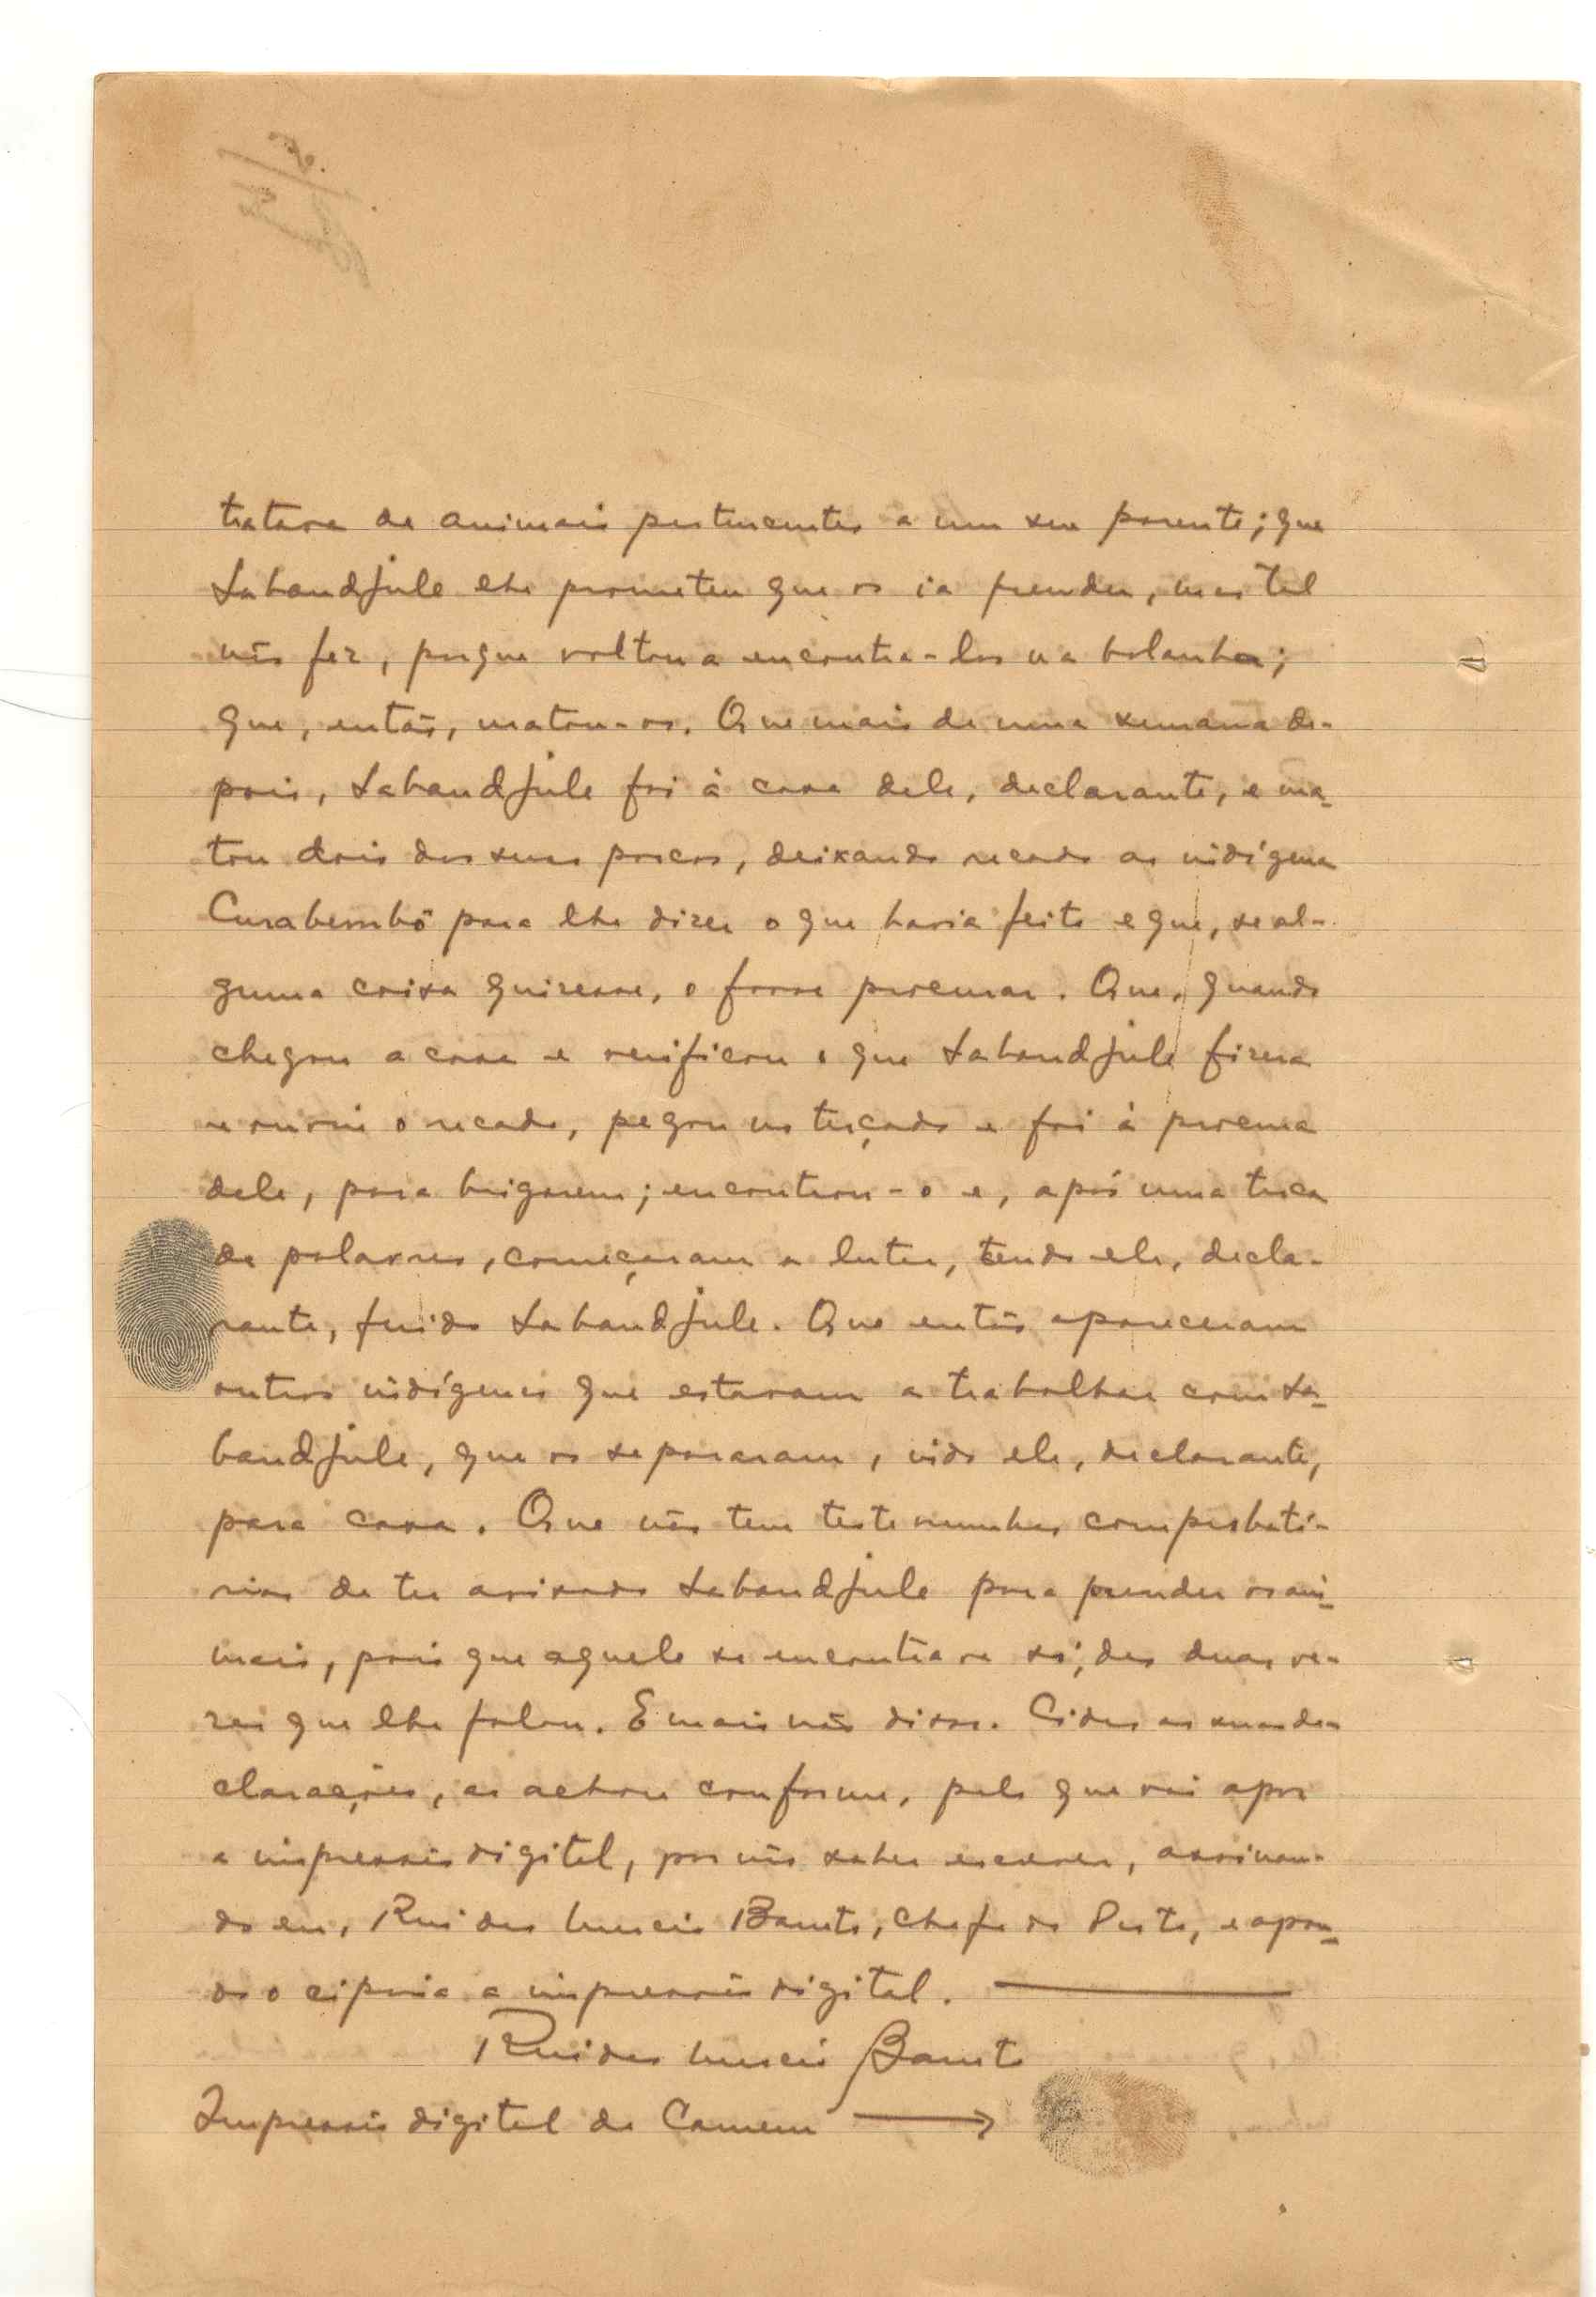 tratava de animais pertencentes a um seu parente; que
Sabandjule lhe prometeu que os ia prender, mas tal
não fez, porque voltou a encontra-los na bolanha;
que, então, matou-os. Que mais de uma semana de-
pois, Sabandjule foi à casa dele, declarante, e ma-
tou dois dos seus porcos, deixando recado ao indígena
Curabembô para lhe dizer o que havia feito e que, se al-
guma coisa quizesse, o fosse procurar. Que, quando
chegou a casa e verificou o que Sabandjule fizera
e ouviu o recado, pegou no terçado e foi à procura
dele, para brigarem; encontrou-o e, após uma troca
de palavras, começaram a lutar, tendo ele, decla-
rante, ferido Sabandjule. Que então apareceram
outros indígenas que estavam a trabalhar com Sa-
bandjule, que os separaram, indo ele, declarante,
para casa. Que não tem testemunhas comprobató-
rias de ter avisado Sabandjule para prender os ani-
mais, pois que aquele se encontrava só, das duas ve-
zes que lhe falou. E mais não disse. Lidas as suas de-
clarações, as achou conforme, pelo que vai apor
a impressão digital, por não saber escrever, assinan-
do eu, Rui dos Barreto, Chefe do Posto, e apon-
do o cipaio a impressão digital.
Rui dos Barreto
Impressão digital de Camem →